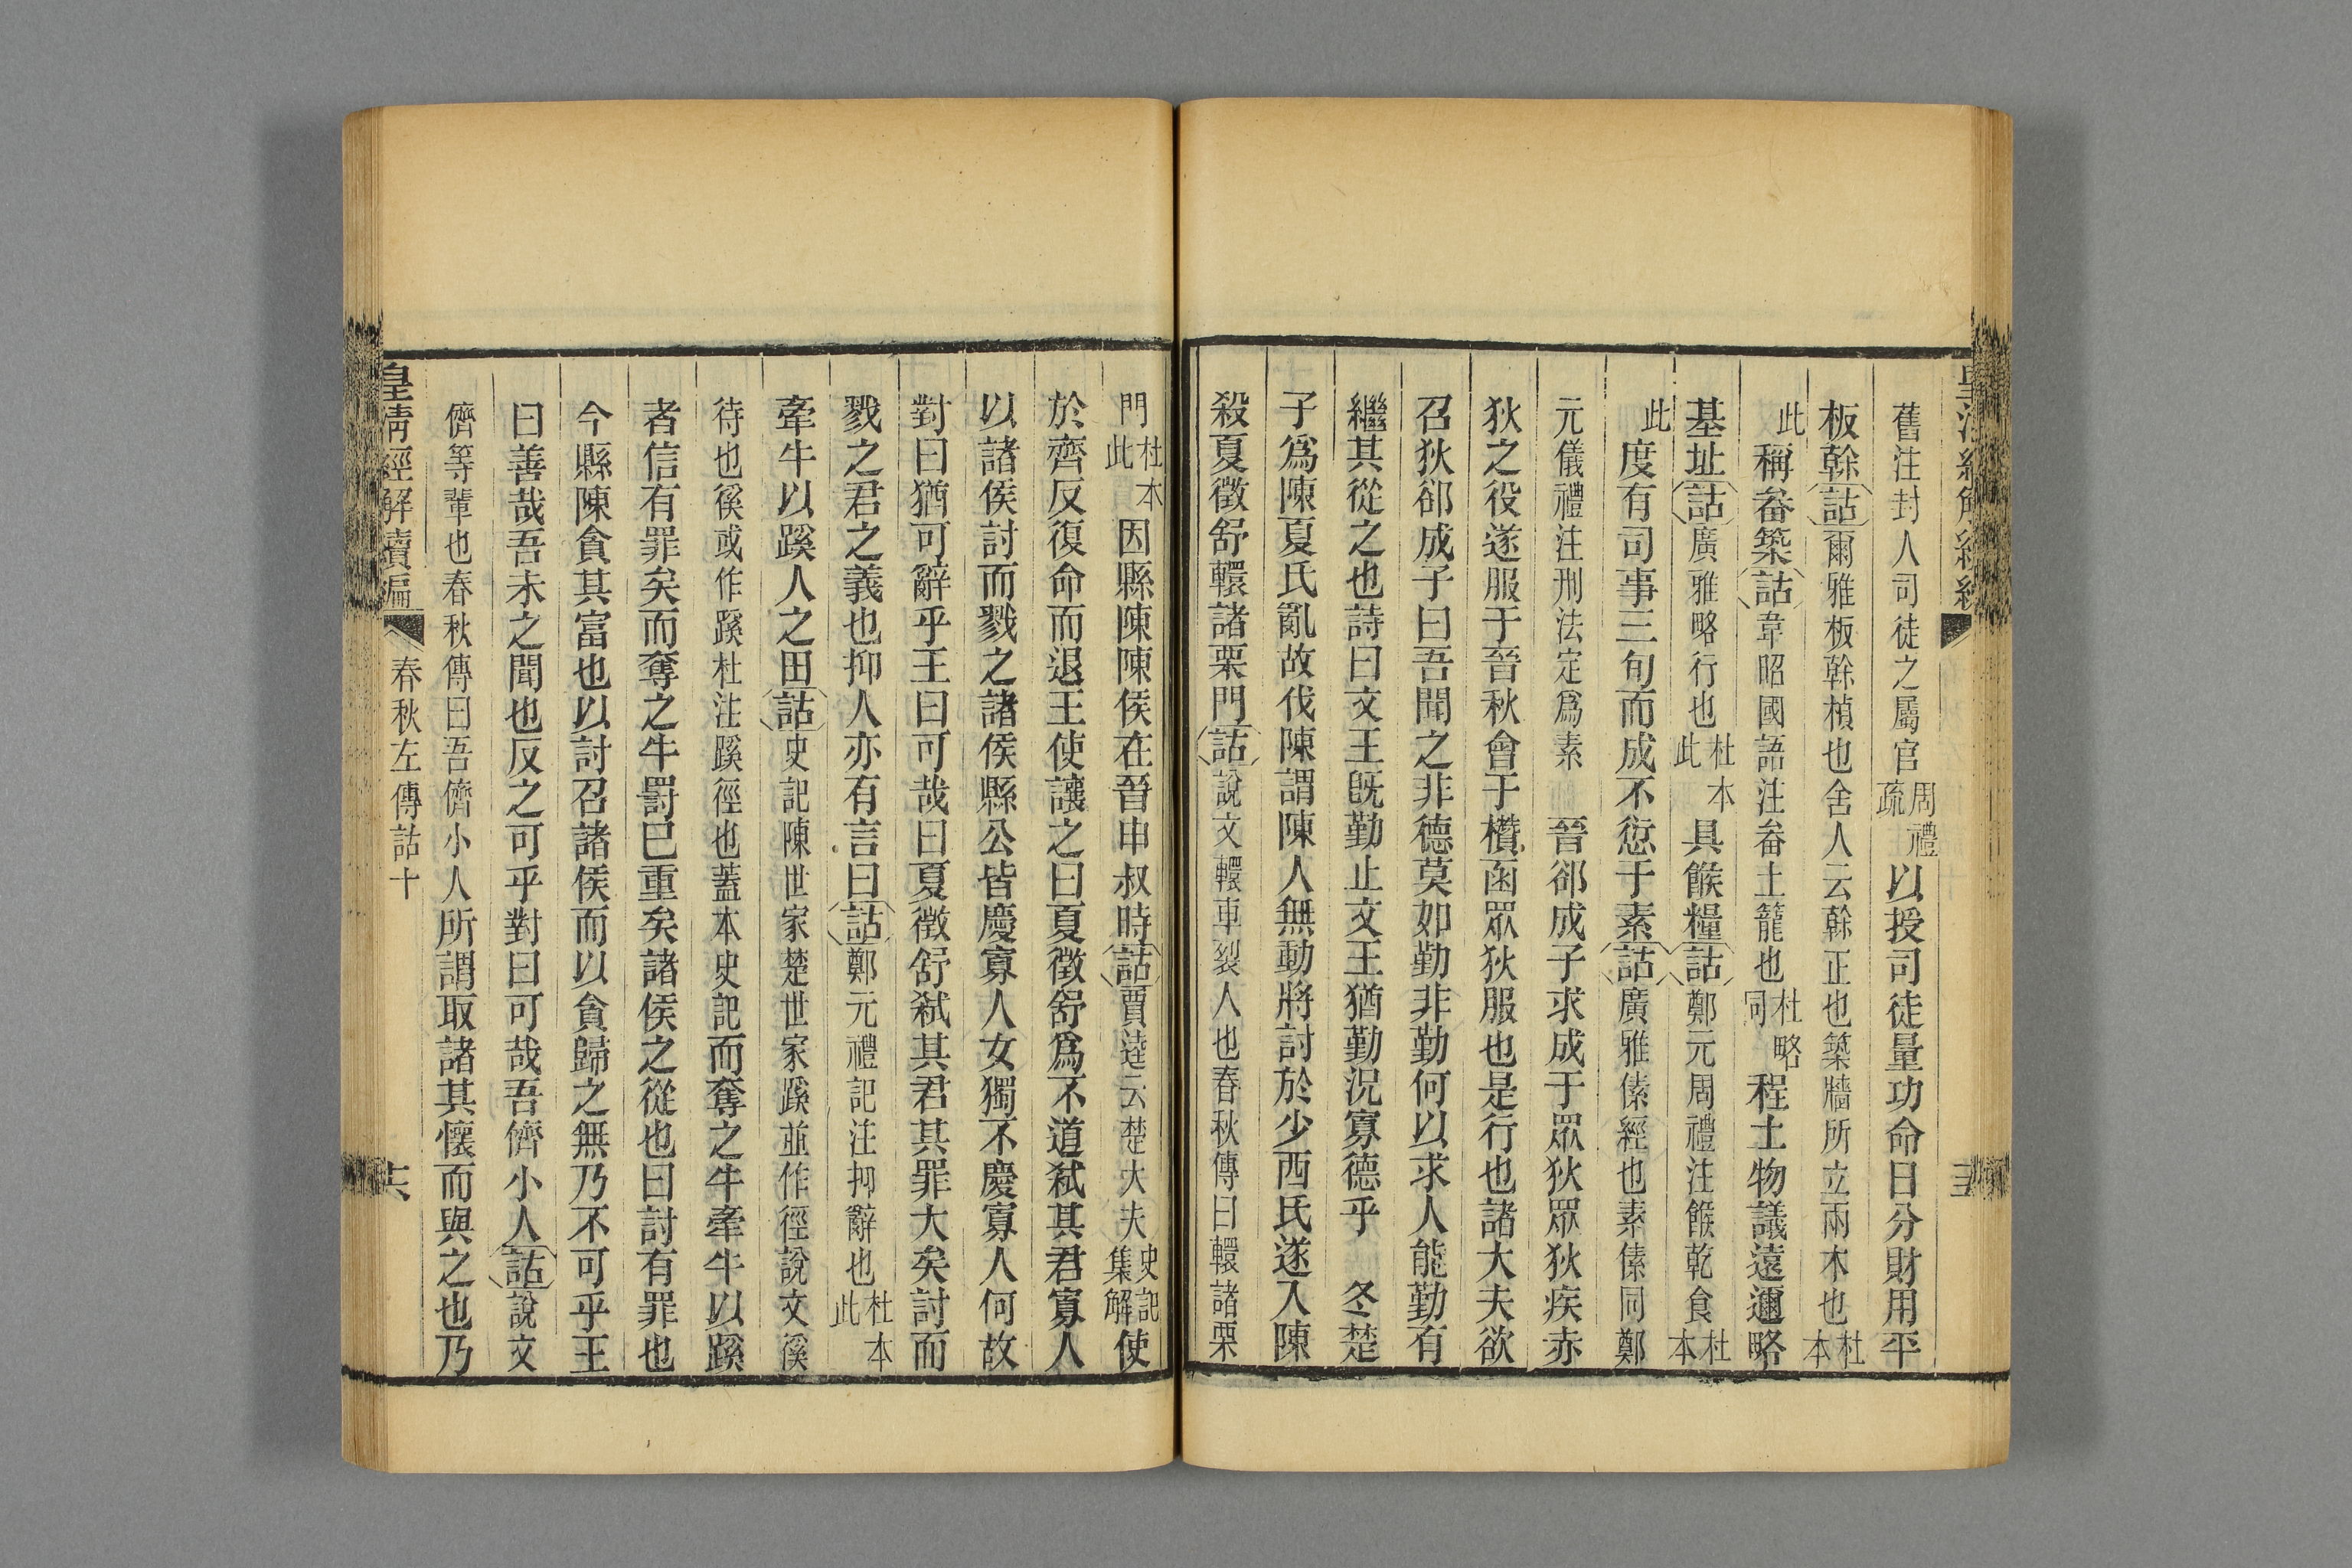 舊注封人司徒之屬官周禮疏以授司徒量功命日分財用平
板榦詁爾雅板榦楨也舍人云榦正也築牆所立兩木也杜本
此稱畚築詁韋昭國語注畚土籠也杜略同程土物議遠邇略
基址詁廣雅略行也杜本此具餱糧詁鄭元周禮注餱乾食杜本
此度有司事三旬而成不愆于素詁廣雅傃經也素傃同鄭
元儀禮注刑法定爲素 晉郤成子求成于眾狄眾狄疾赤
狄之役遂服于晉秋會于欑函眾狄服也是行也諸大夫欲
召狄郤成子曰吾聞之非德莫如勤非勤何以求人能勤有
繼其從之也詩曰文王既勤止文王猶勤況寡德乎 冬楚
子爲陳夏氏亂故伐陳謂陳人無動將討於少西氏遂入陳
殺夏徵舒轘諸栗門詁說文轘車裂人也春秋傳曰轘諸栗
門杜本此因縣陳陳侯在晉申叔時詁賈逵云楚大夫史記集解使
於齊反復命而退王使讓之曰夏徵舒爲不道弑其君寡人
以諸侯討而戮之諸侯縣公皆慶寡人女獨不慶寡人何故
對曰猶可辭乎王曰可哉曰夏徵舒弑其君其罪大矣討而
戮之君之義也抑人亦有言曰詁鄭元禮記注抑辭也杜本此
牽牛以蹊人之田詁史記陳世家楚世家蹊並作徑說文徯
待也徯或作蹊杜注蹊徑也蓋本史記而奪之牛牽牛以蹊
者信有罪矣而奪之牛罰已重矣諸侯之從也曰討有罪也
今縣陳貪其富也以討召諸侯而以貪歸之無乃不可乎王
曰善哉吾未之聞也反之可乎對曰可哉吾儕小人詁說文
儕等輩也春秋傳曰吾儕小人所謂取諸其懷而與之也乃
皇清經解續編 春秋左傳詁十 六